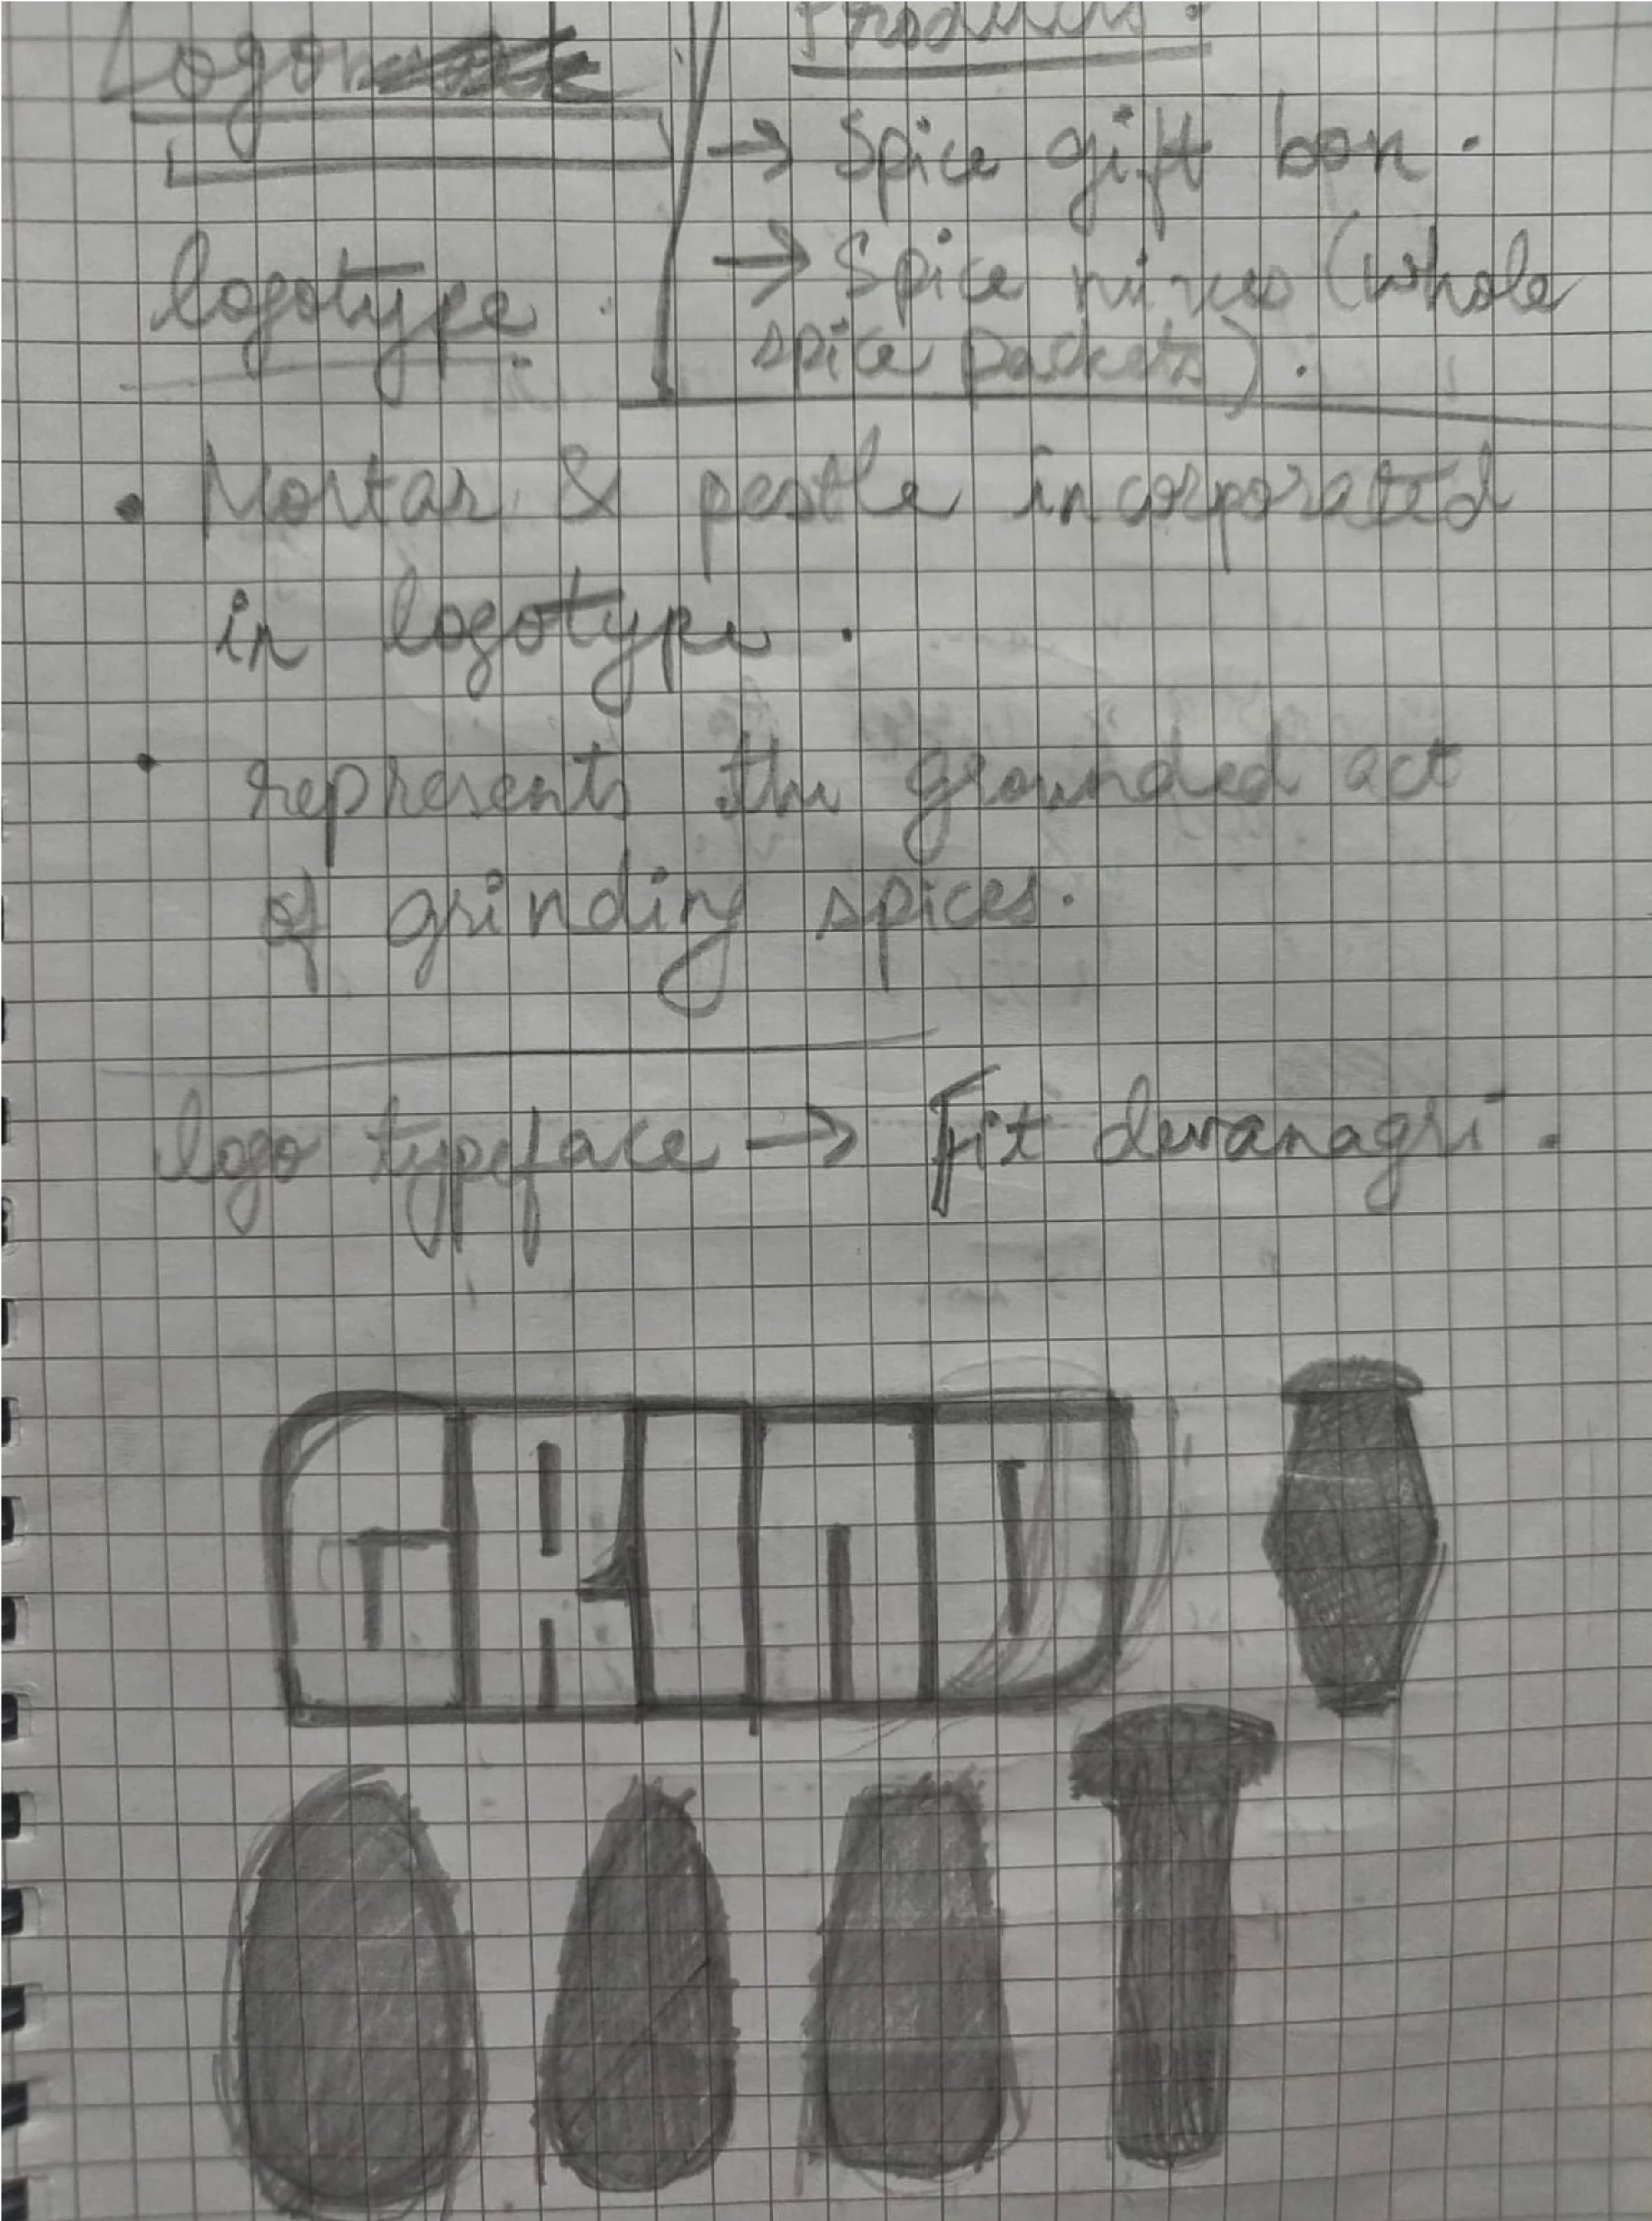 Logo
Products:
→ Spice gift box.
→ Spice mixes (whole
spice packets).
logotype
• Mortar & pestle incorporated
in logotype.
• represents the grounded act
of grinding spices.
logo typeface → Fit devanagri.
GRIND